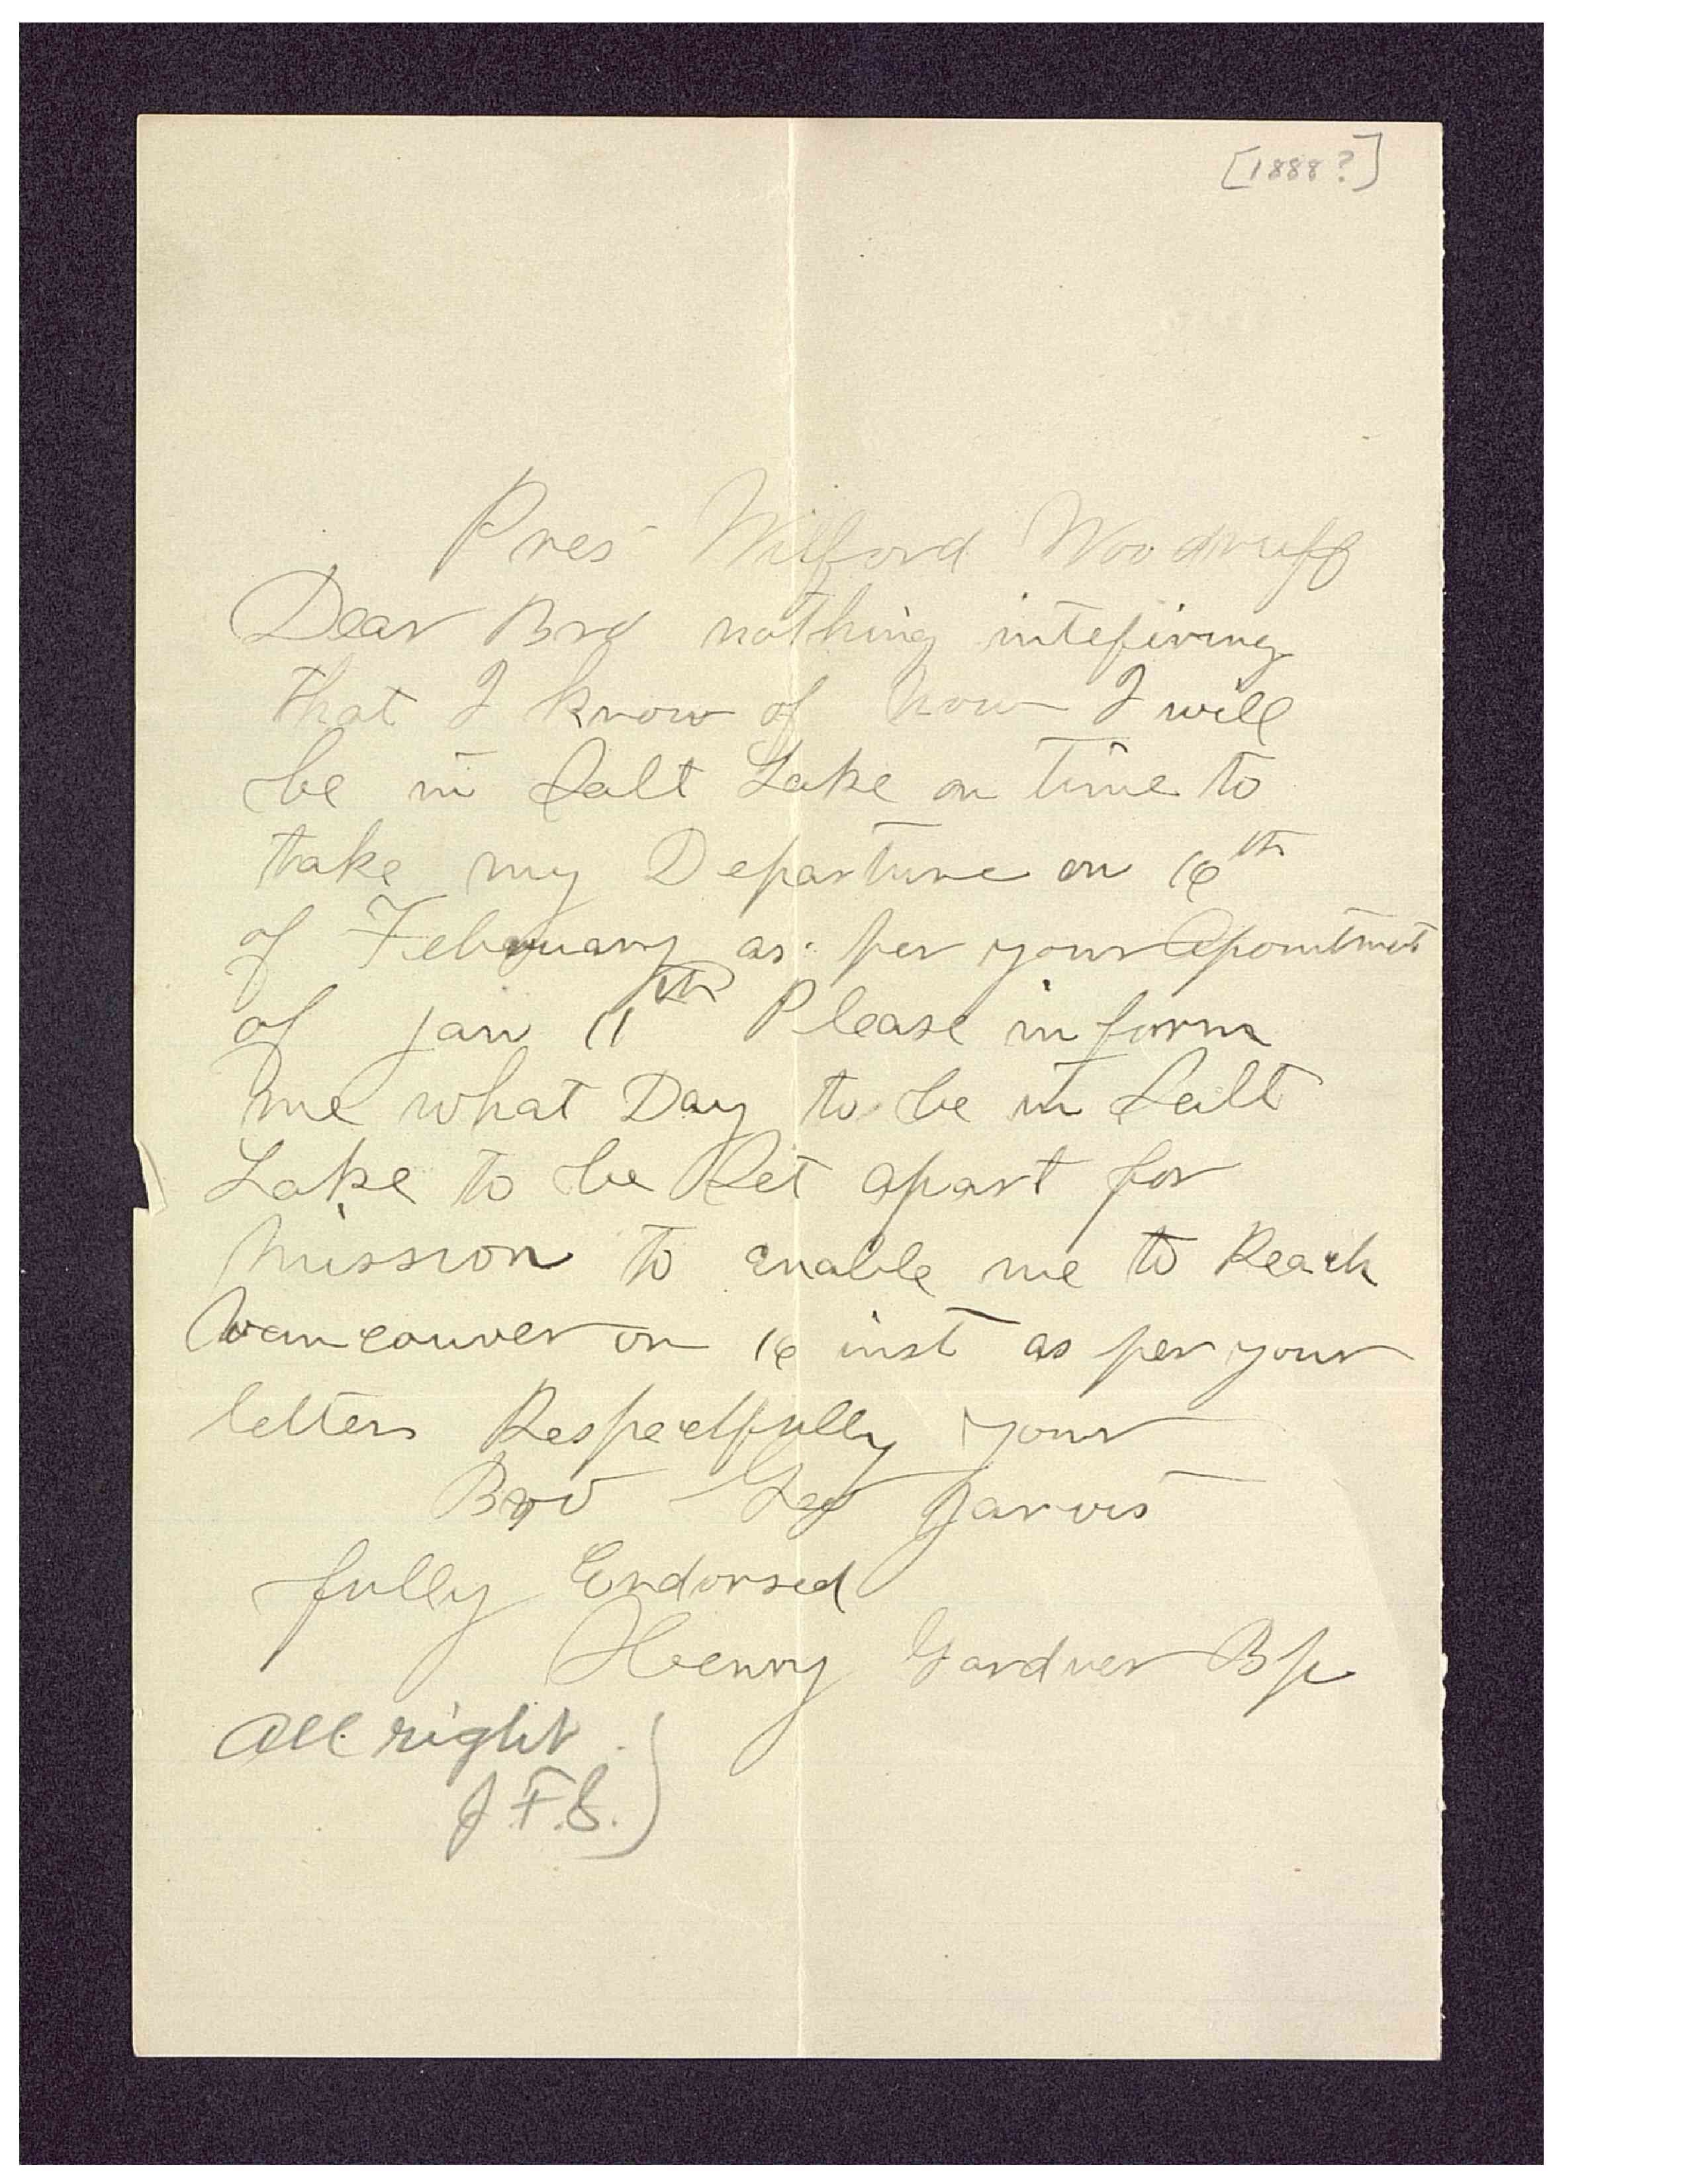 [1888?]
Pres Wilford Woodruff
Dear Bro nothing intefiring
that I know of now I will
be in Salt Lake on time to
take my Departure on 16th
of February as per your Apointmet
of jan 11th Please inform
me what Day to be in Salt
Lake to be Set apart for
Mission to enable me to Reach
Vancouver on 16 inst as per your
letters Respectfully your
Bro Geo Jarvis
fully Endorsed
Henry Gardner Bp
All right.
J.F.S.)